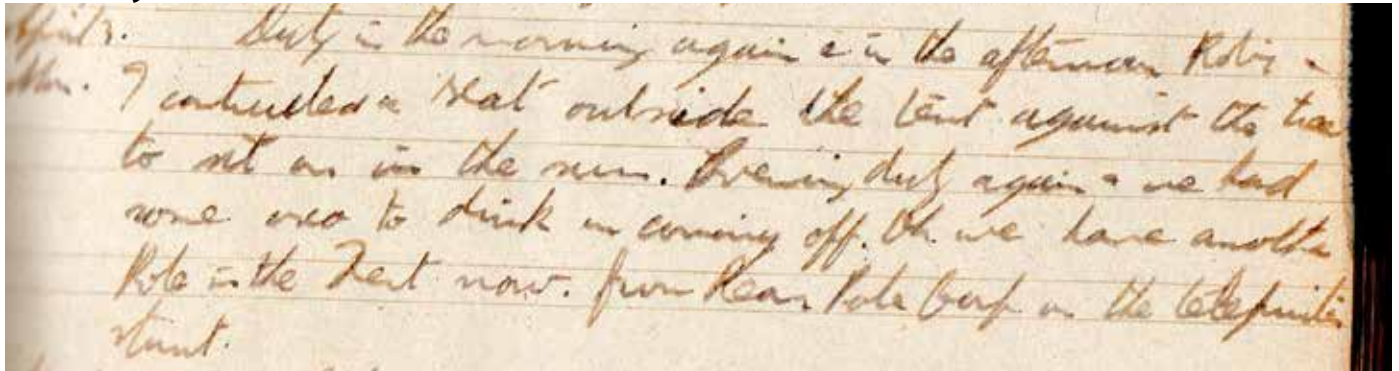 April 3. Duty in the morning again & in the afternoon &
Mon. I contructed a seat outside the tent against the tree
to sit on in the sun. Evening duty again & we had
some vino to drink on coming off. Oh we have another
Pole in the tent now. from Rear Pole Corp on the teleprinter
stunt.